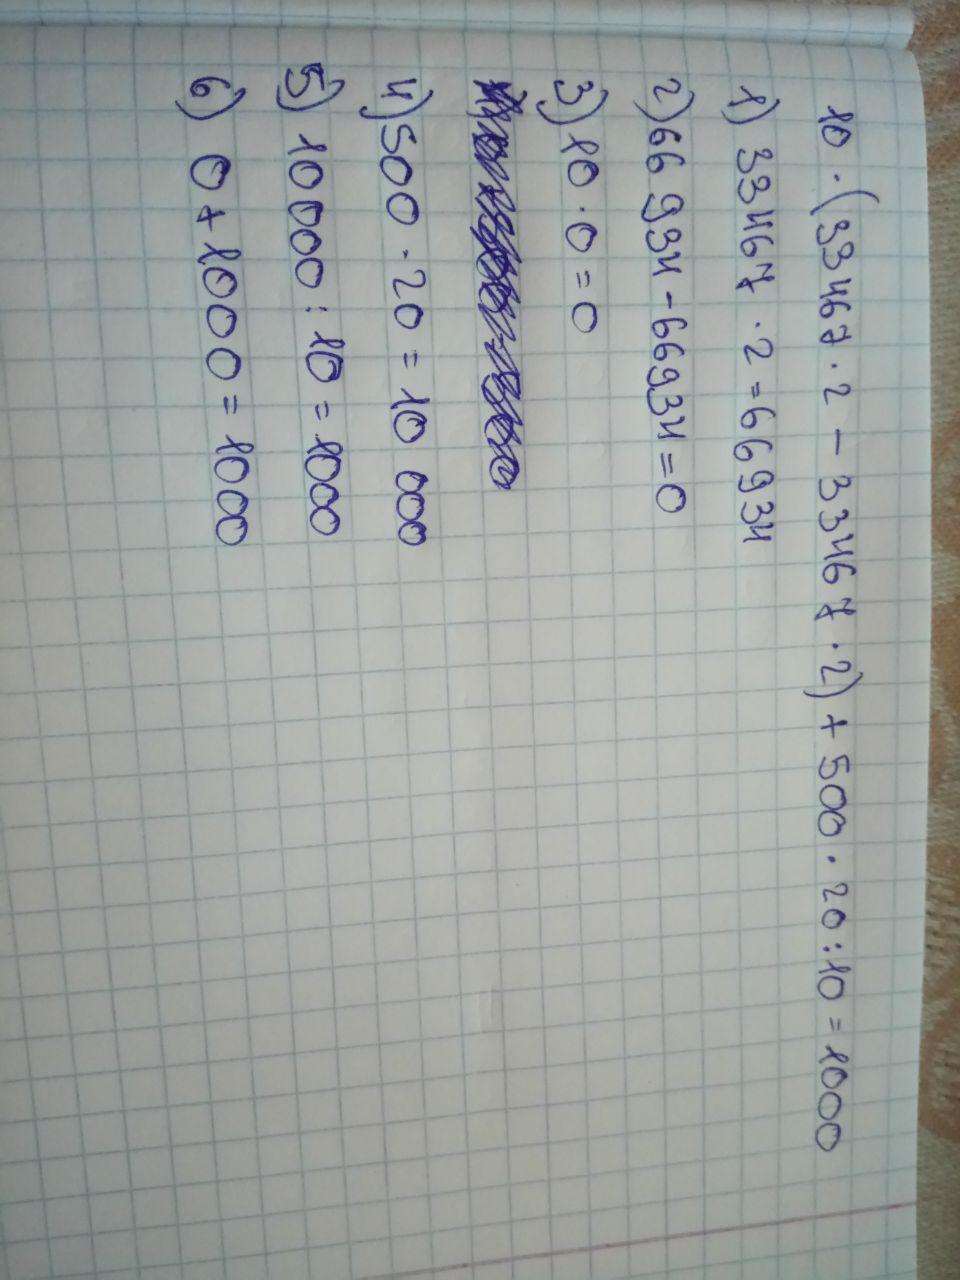 10 · (33467 · 2 - 33467 · 2) + 500 · 20 : 10 = 1000
1) 33467 · 2 = 66934
2) 66934 - 66934 = 0
3) 10 · 0 = 0
4) 500 · 20 = 10 000
5) 10 000 : 10 = 1000
6) 0 + 1000 = 1000